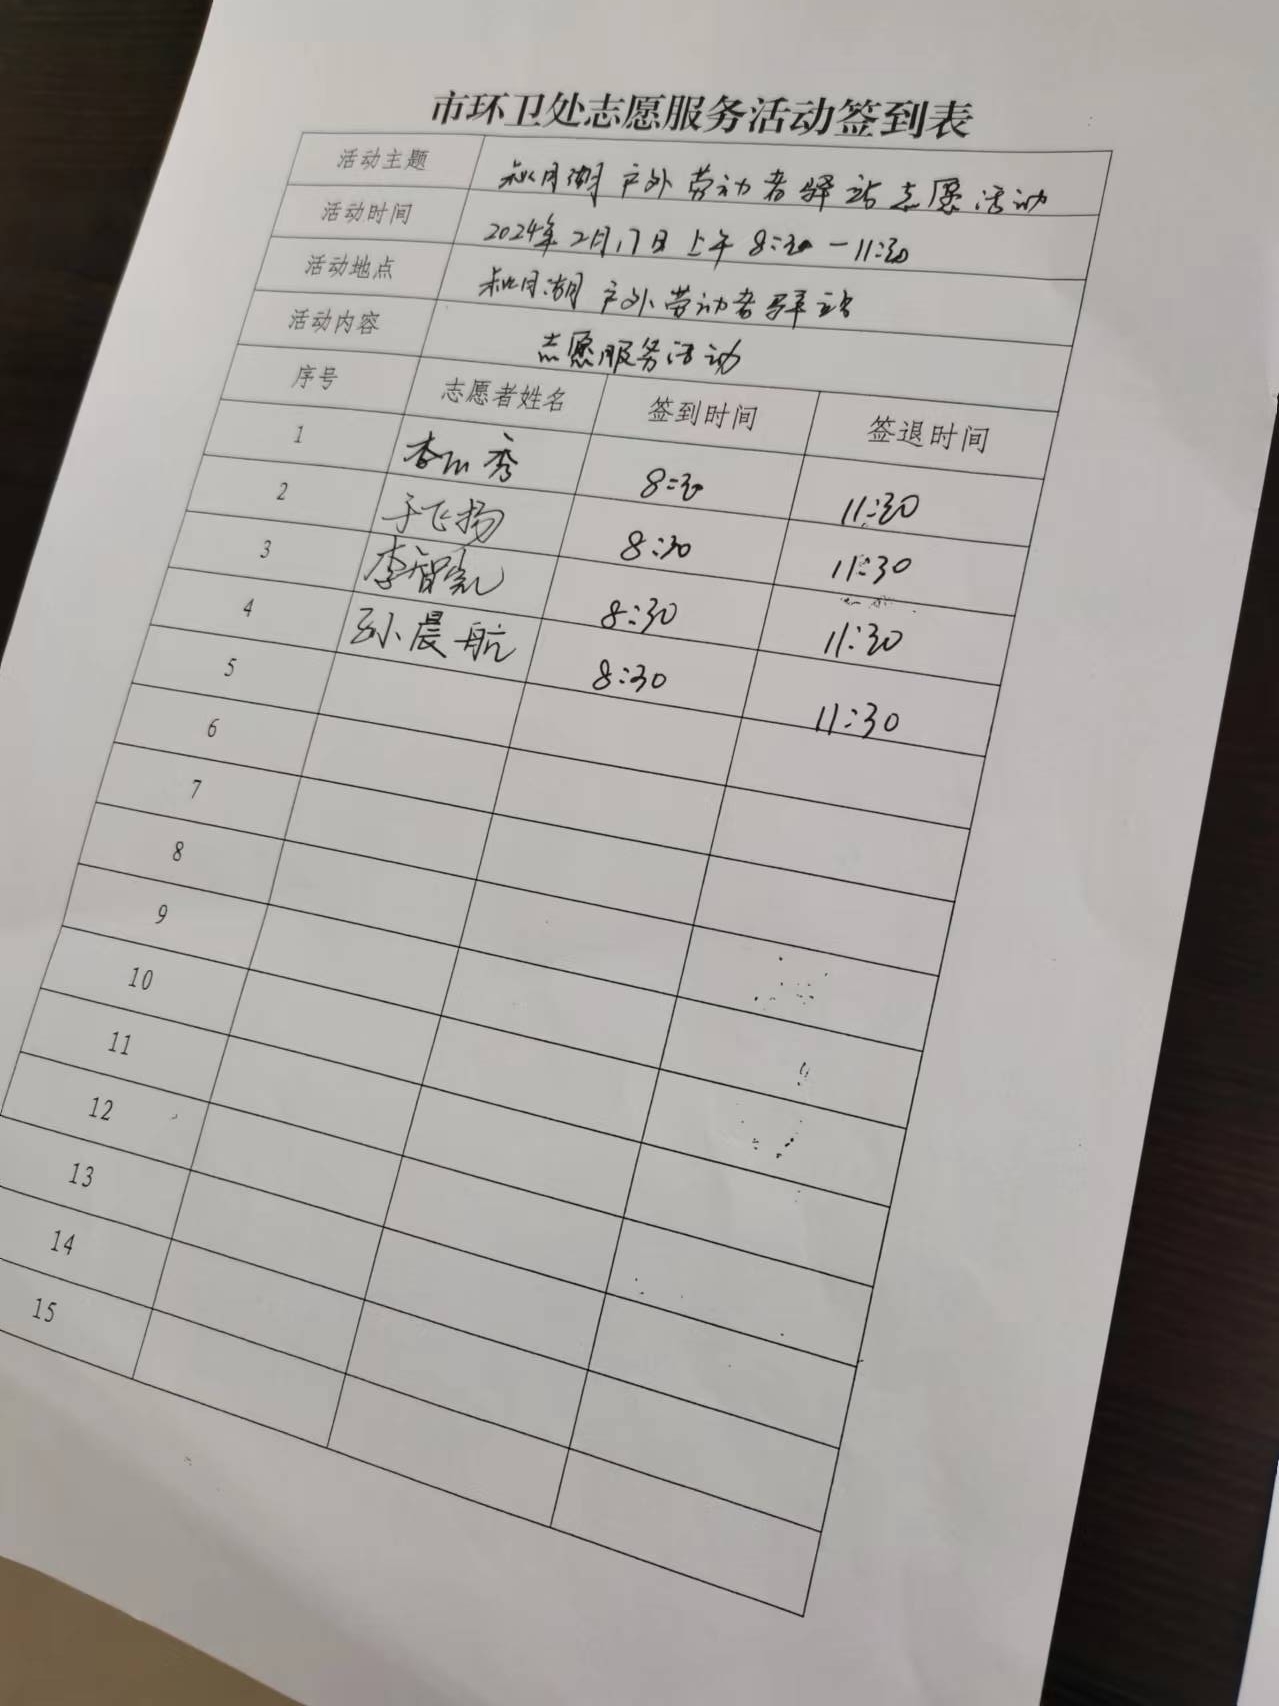 市环卫处志愿服务活动签到表
活动主题 秋月湖户外劳动者驿站志愿活动
活动时间 2024年2月17日上午8:30-11:30
活动地点 秋月湖户外劳动者驿站
活动内容 志愿服务活动
序号 志愿者姓名 签到时间 签退时间
1 秀 8:30 11:30
2 于飞扬 8:30 11:30
3 李智凯 8:30 11:30
4 孙晨航 8:30 11:30
5
6
7
8
9
10
11
12
13
14
15